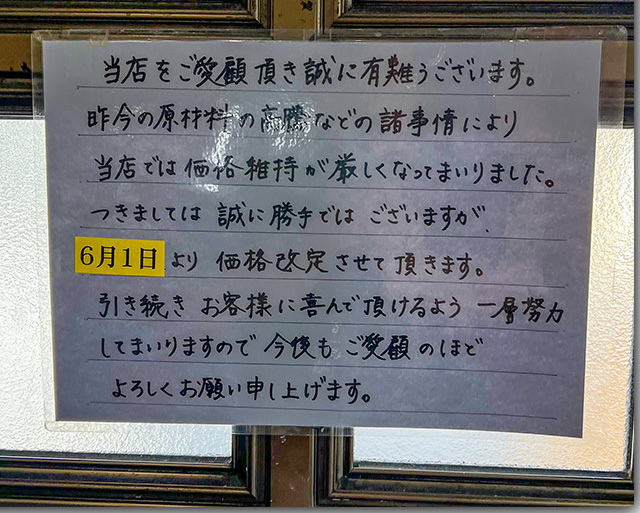 当店をご愛顧頂き誠に有難うございます。
昨今の原材料の高騰などの諸事情により
当店では価格維持が厳しくなってまいりました。
つきましては誠に勝手ではございますが、
6月1日より価格改定させて頂きます。
引き続きお客様に喜んで頂けるよう一層努力
してまいりますので今後もご愛顧のほど
よろしくお願い申し上げます。